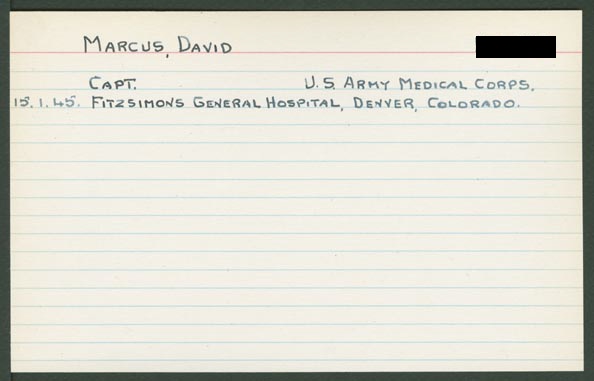 MARCUS, DAVID
CAPT. U.S. ARMY MEDICAL CORPS.
15.1.45. FITZSIMONS GENERAL HOSPITAL, DENVER, COLORADO.